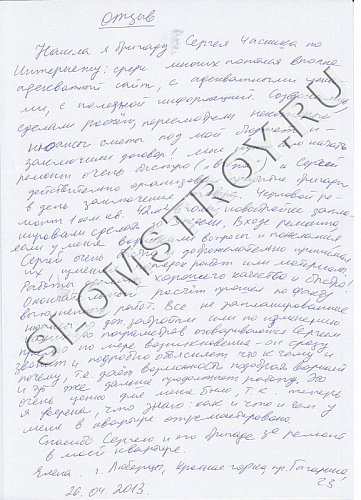 Отзыв.
Нашла я бригаду Сергея Часника по
Интернету: среди многих попался вполне
адекватный сайт, с адекватными цена-
ми, с полезной информацией. Созвонились
сделали расчёт, пересмотрели
нюансы сметы под мой бюджет и
заключили договор! Мне надо
ремонт очень быстро и Сергей
действительно организовал бригады
в день заключения Черновой ре-
монт 1 ком.кв. 42 новостройке запла-
нировали сделать за В ходе ремонта
если у меня возникали вопросы и пожелания
Сергей очень доброжелательно принимал
их работ или материалы.
Работы хорошего качества и быстро!
Окончательный расчёт прошёл по факту
выполненных работ. Все не запланированные
доп. работам или по изменению
оговариваются Сергеем
по мере возникновения - он сразу
звонит и подробно объясняет что к чему и
почему, т.е. даёт возможность подобрать вариант
и тут же дальше продолжает работу. Это
очень ценно для меня было, т.к. теперь
я уверена, что знаю: как и что и где у
меня в квартире отремонтировано.
Спасибо Сергею и его бригаде за ремонт
в моей квартире.
Елена. г. Люберцы, Красная горка пр. Гагарина
23
26.04.2013.
SLOMSTROY.RU